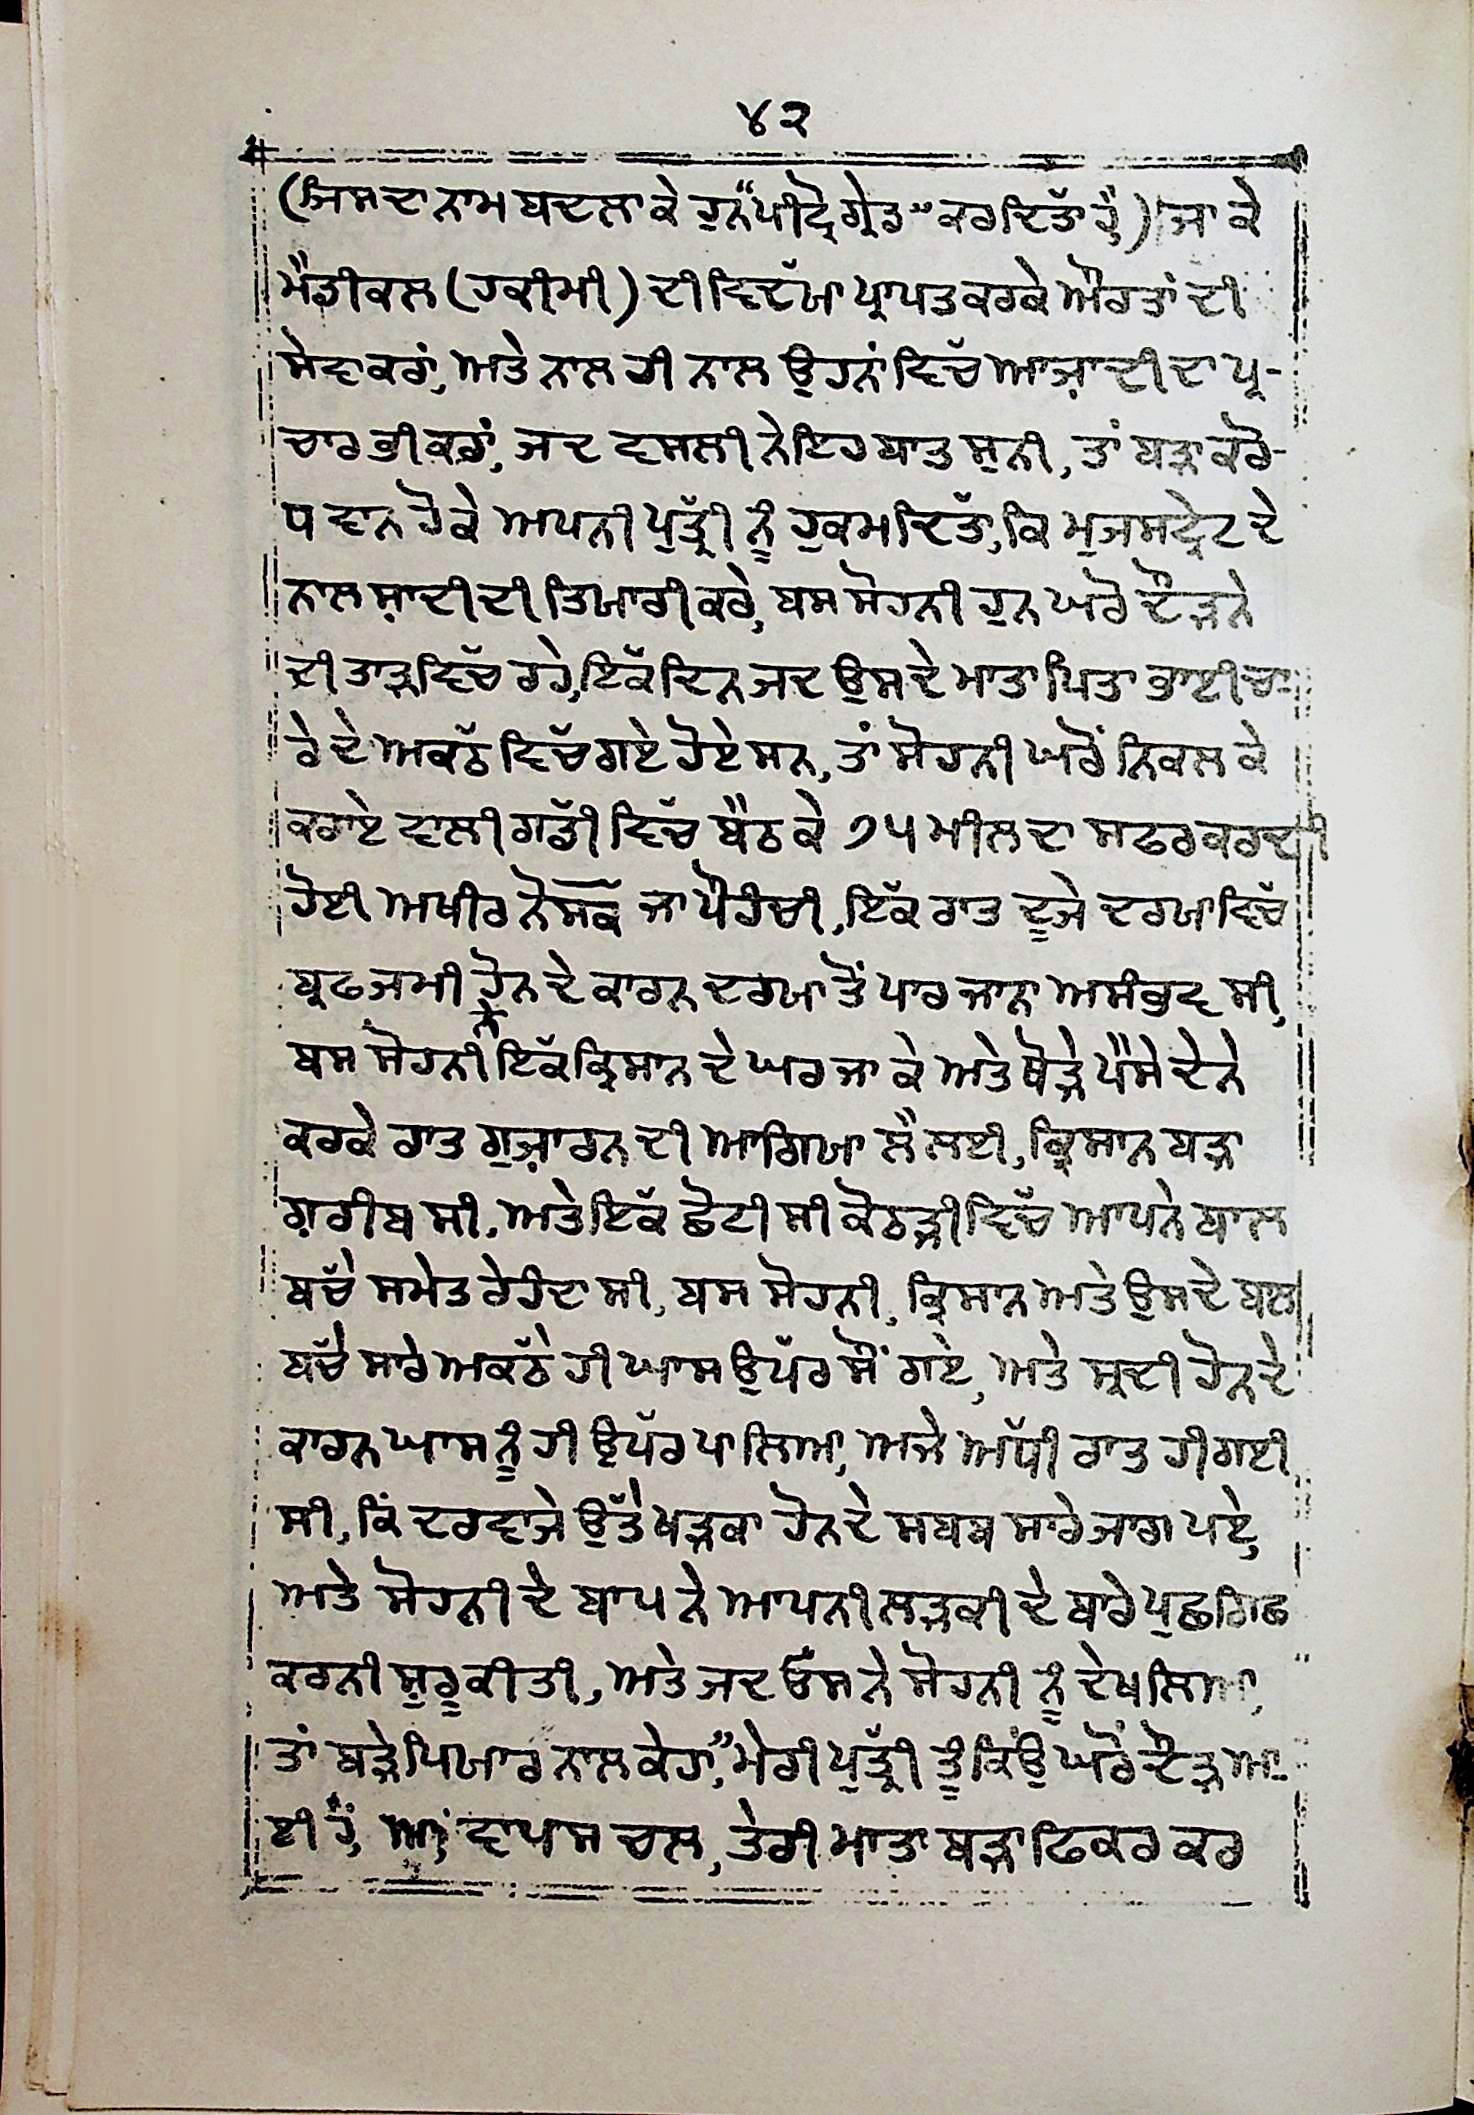 ੪੨
(ਜਿਸ ਦਾ ਨਾਮ ਬਦਲਾ ਕੇ ਹੁਨ "ਪੀਟ੍ਰੋਗ੍ਰੇਡ" ਕਰ ਦਿਤਾ ਹੈ) ਜਾ ਕੇ
ਮੈਡੀਕਲ (ਹਕੀਮੀ) ਦੀ ਵਿਦੱਯਾ ਪ੍ਰਾਪਤ ਕਰਕੇ ਔਰਤਾਂ ਦੀ
ਸੇਵ ਕਰਾਂ, ਅਤੇ ਨਾਲ ਹੀ ਨਾਲ ਉਹਨਾਂ ਵਿਚੱ ਆਜ਼ਾਦੀ ਦਾ ਪ੍ਰ-
ਚਾਰ ਭੀ ਕਰਾਂ, ਜਦ ਵਸਲੀ ਨੇ ਇਹ ਬਾਤ ਸੁਨੀ, ਤਾਂ ਬੜਾ ਕਰੋ-
ਧਵਾਨ ਹੋਕੇ ਅਪਨੀ ਪੁਤੱ੍ਰੀ ਨੂੰ ਹੁਕਮ ਦਿਤਾ, ਕਿ ਮੁਜਸਟ੍ਰੇਟ ਦੇ
ਨਾਲ ਸ਼ਾਦੀ ਦੀ ਤਿਯਾਰੀ ਕਰੇ, ਬਸ ਸੋਹਨੀ ਹੁਨ ਘਰੋਂ ਦੌੜਨੇ
ਦੀ ਤਾੜ ਵਿਚੱ ਰਹੇ, ਇਕੱ ਦਿਨ ਜਦ ਉਸਦੇ ਮਾਤਾ ਪਿਤਾ ਭਾਈਚਾ-
ਰੇ ਦੇ ਅਕਠੱ ਵਿਚੱ ਗਏ ਹੋਏ ਸਨ, ਤਾਂ ਸੋਹਨੀ ਘਰੋਂ ਨਿਕਲ ਕੇ
ਕਰਾਏ ਵਾਲੀ ਗਡੀੱ ਵਿਚੱ ਬੈਠ ਕੇ ੭੫ ਮੀਲ ਦਾ ਸਫਰ ਕਰਦੀ
ਹੋਈ ਅਖੀਰ ਨੋਸਕੋ ਜਾ ਪੌਹੰਚੀ, ਇਕੱ ਰਾਤ ਦੂਜੇ ਦਰਯਾ ਵਿਚੱ
ਬ੍ਰਫ ਜਮੀ ਹੋਨ ਦੇ ਕਾਰਨ ਦਰਯਾ ਤੋਂ ਪਾਰ ਜਾਨਾ ਅਸੰਭਵ ਸੀ,
ਬਸ ਸੋਹਨੀ ਨੇ ਇਕੱ ਕ੍ਰਿਸਾਨ ਦੇ ਘਰ ਜਾ ਕੇ ਅਤੇ ਥੋੜੇ ਪੈਸੇ ਦੇਨੇ
ਕਰਕੇ ਰਾਤ ਗੁਜ਼ਾਰਨ ਦੀ ਆਗਿਯਾ ਲੈ ਲਈ, ਕ੍ਰਿਸਾਨ ਬੜਾ
ਗ਼ਰੀਬ ਸੀ, ਅਤੇ ਇਕੱ ਛੋਟੀ ਸੀ ਕੋਠੜੀ ਵਿਚੱ ਆਪਨੇ ਬਾਲ
ਬਚੱੇ ਸਮੇਤ ਰੇਹੰਦਾ ਸੀ, ਬਸ ਸੋਹਨੀ, ਕ੍ਰਿਸਾਨ ਅਤੇ ਉਸਦੇ ਬਾਲ
ਬਚੱੇ ਸਾਰੇ ਅਕਠੱੇ ਹੀ ਘਾਸ ਉਪੱਰ ਸੌਂ ਗਏ, ਅਤੇ ਸ੍ਰਦੀ ਹੋਨ ਦੇ
ਕਾਰਨ ਘਾਸ ਨੂੰ ਹੀ ਉਪੱਰ ਪਾ ਲਿਆ, ਅਜੇ ਅੱਧੀ ਰਾਤ ਹੀ ਗਈ
ਸੀ, ਕਿ ਦਰਵਾਜੇ ਉਤੱੇ ਖੜਕਾ ਹੋਨ ਦੇ ਸਬਬ ਸਾਰੇ ਜਾਗ ਪਏ,
ਅਤੇ ਸੋਹਨੀ ਦੇ ਬਾਪ ਨੇ ਆਪਨੀ ਲੜਕੀ ਦੇ ਬਾਰੇ ਪੁਛ ਗਿਛ
ਕਰਨੀ ਸ਼ੁਰੂ ਕੀਤੀ, ਅਤੇ ਜਦ ਉਸ ਨੇ ਸੋਹਨੀ ਨੂੰ ਦੇਖ ਲਿਆ,
ਤਾਂ ਬੜੇ ਪਿਯਾਰ ਨਾਲ ਕੇਹਾ, "ਮੇਰੀ ਪੁਤੱ੍ਰੀ ਤੂੰ ਕਿਂਉ ਘਰੋਂ ਦੌੜ ਆ-
ਈ ਹੈਂ, ਵਾਪਸ ਚਲ, ਤੇਰੀ ਮਾਤਾ ਬੜਾ ਫਿਕਰ ਕਰ